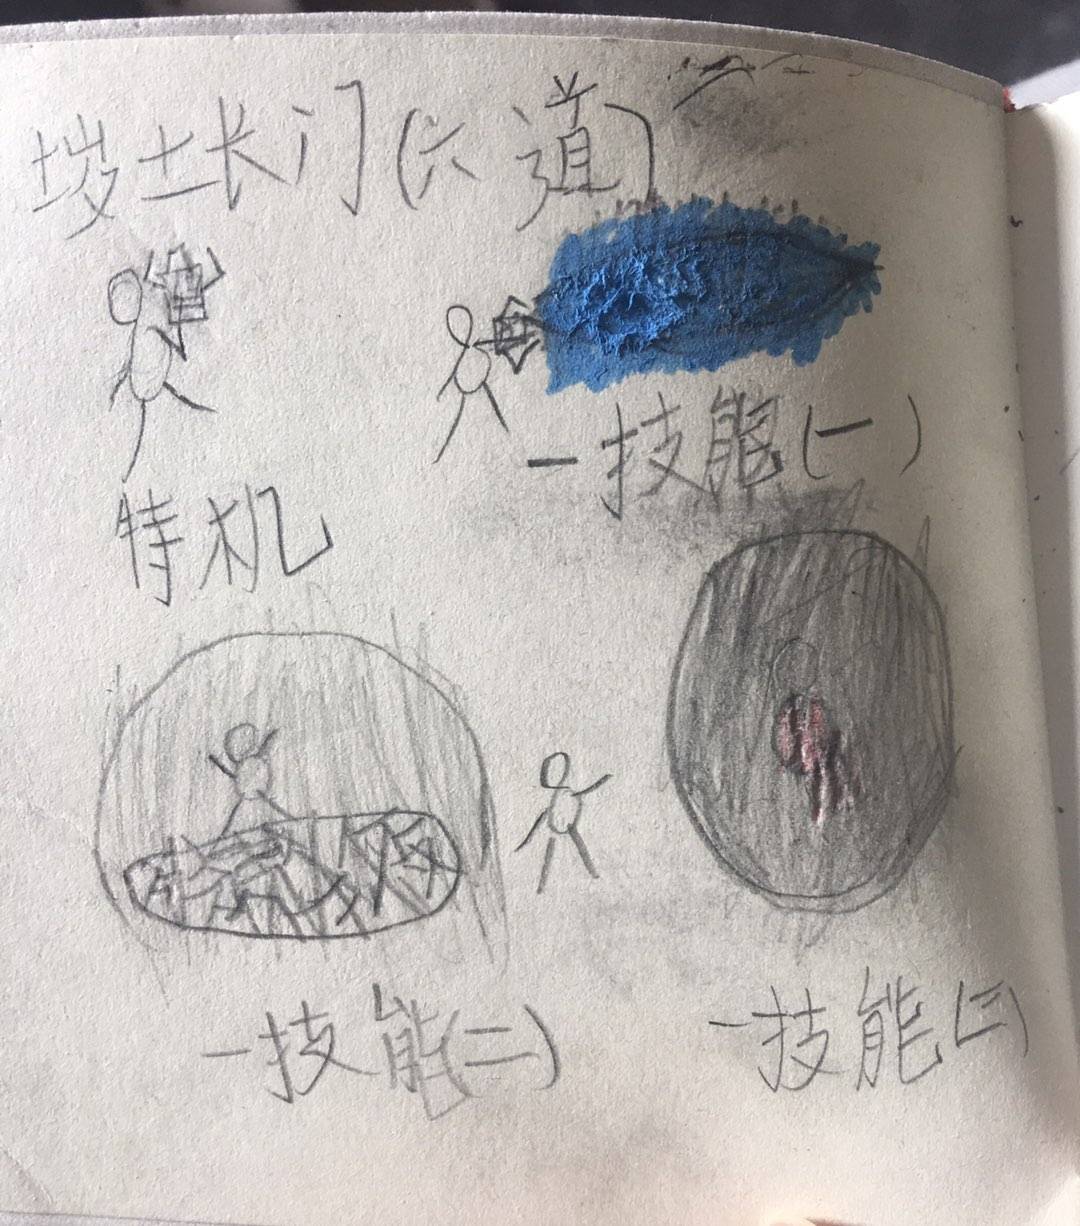 秽土长门(六道)
特机
一技能(一)
一技能(二)
一技能(三)